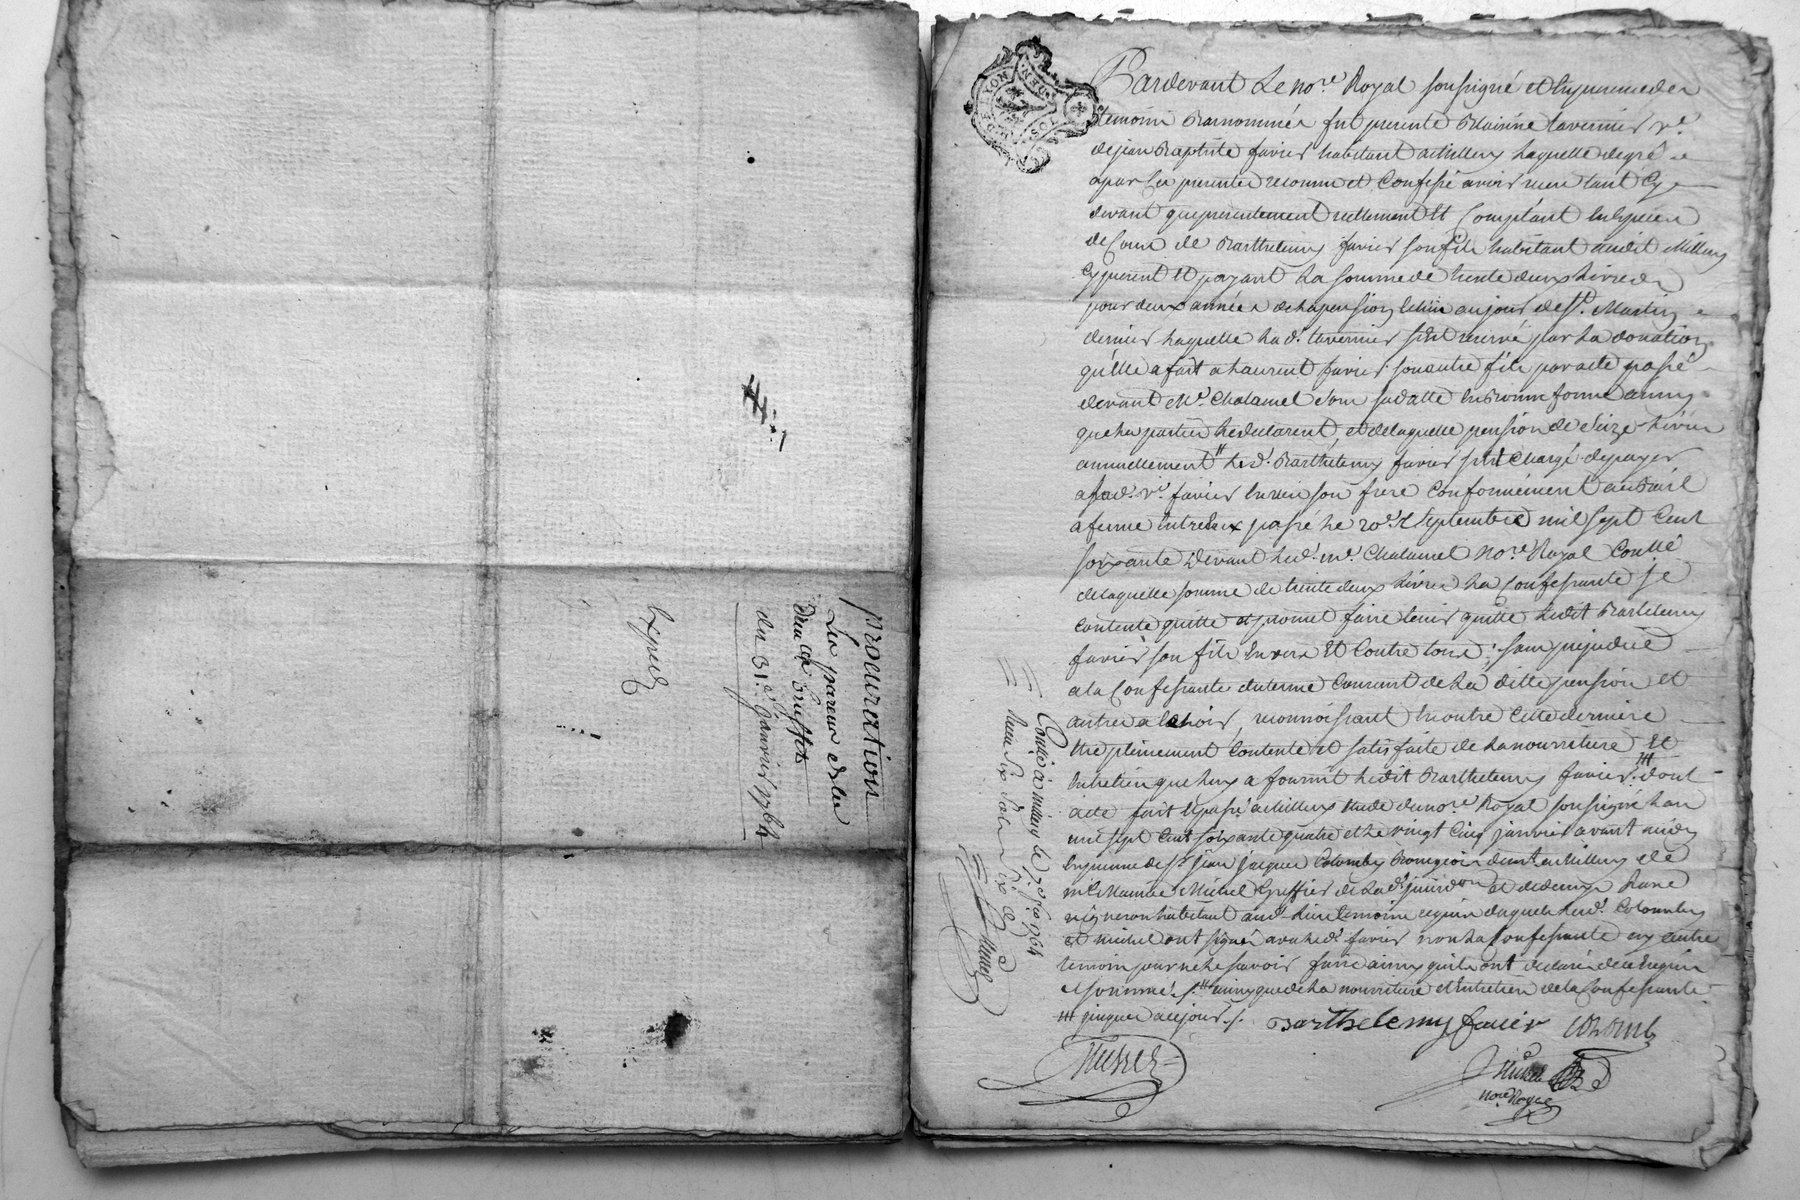 procuration
Les parens
du 31e Janvier 1764
Expedé
GEN. DE LYON
DEN.
Pardevant Le no.re Royal soussigné et En presence des
temoins Bas nommés fut presente tavernier v.e
de jean Baptiste favier habitant a Millery Laquelle de gré
a par Les presentes reconnu et Confessé avoir reçu tant Cy
devant que presentement reellement Et Comptant En Especes
de Cours de Barthelemy favier son fils habitant audit Millery
Cy present Et payant La somme de trente deux Livres
pour deux années de la pension Echue au jour de St. Martin
dernier Laquelle La d.e tavernier s'est reservé par La donation
qu'elle a fait a Laurent favier son autre fils par acte passé
devant M.e Chalamel sous sa datte En Bonne forme ainsy
que Les parties Le declarent, et de laquelle pension de Seize Livres
annuellement Led. Barthelemy favier s'est Chargé de payer
a Lad. v.e favier Envers son frere Conformement au Bail
a ferme Entre Eux passé Le 20.e septembre mil sept Cent
soixante devant Led. m.e Chalamel No.re Royal Conllé
de laquelle somme de trente deux Livres La Confessante se
Contente quitte et promet faire tenir quitte Ledit Barthelemy
favier son fils Envers Et Contre tous; sans prejudice
a la Confessante du terme Courant de La ditte pension et
autres a Echoir, reconnoissant En outre Cette derniere
Etre pleinement Contente et satisfaite de La nourriture Et
Entretien que Luy a fournit Ledit Barthelemy favier. dont
acte fait Et passé a Millery Etude du no.re Royal soussigné L'an
mil sept Cent soixante quatre et Le vingt Cinq janvier avant midy
En presence de Sr. Jean Jacques Colomby Bourgeois demt. a Millery et de
m.e Michel Greffier de La d. jurisdon et de
vigneron habitant aud. Lieu temoins requis Lesd. Colomby
et michel ont signés avec Led. favier non La Confessante ny L'autre
temoin pour ne Le savoir faire ainsy qu'ils ont declarés de ce Enquis
et sommés ./. ainsy que de La nourriture et Entretien de la Confessante
jusques a ce jour ./. Barthelemy favier Colomb
no.re Royal
Conllé à millery le 7e 1764
Reçu